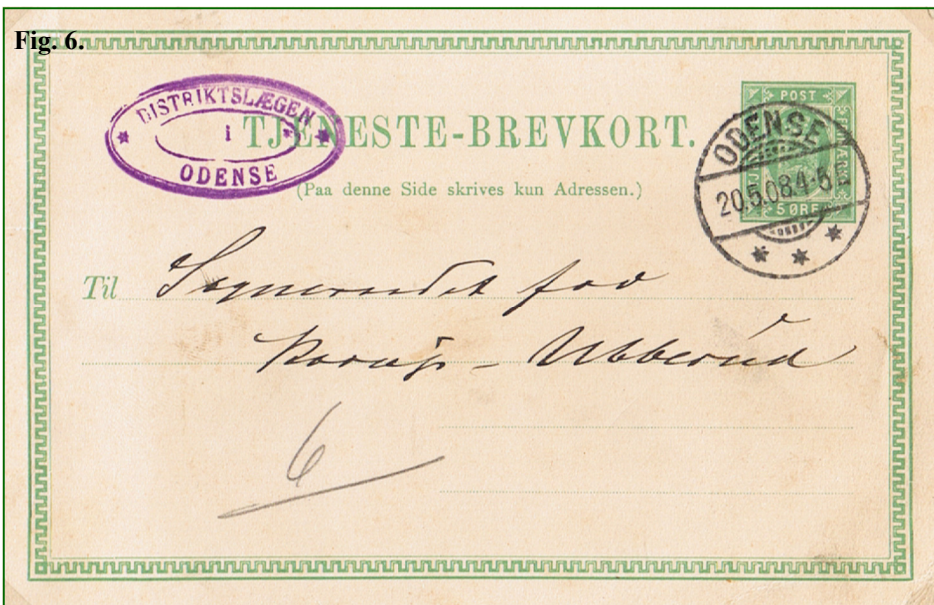 Fig. 6.
DISTRIKTSLÆGEN
i
ODENSE
TJENESTE-BREVKORT.
(Paa denne Side skrives kun Adressen.)
POST
5 ØRE
ODENSE
20.5.08.4-5 E
Til Sogneraadet for
Korup - Ubberud
6